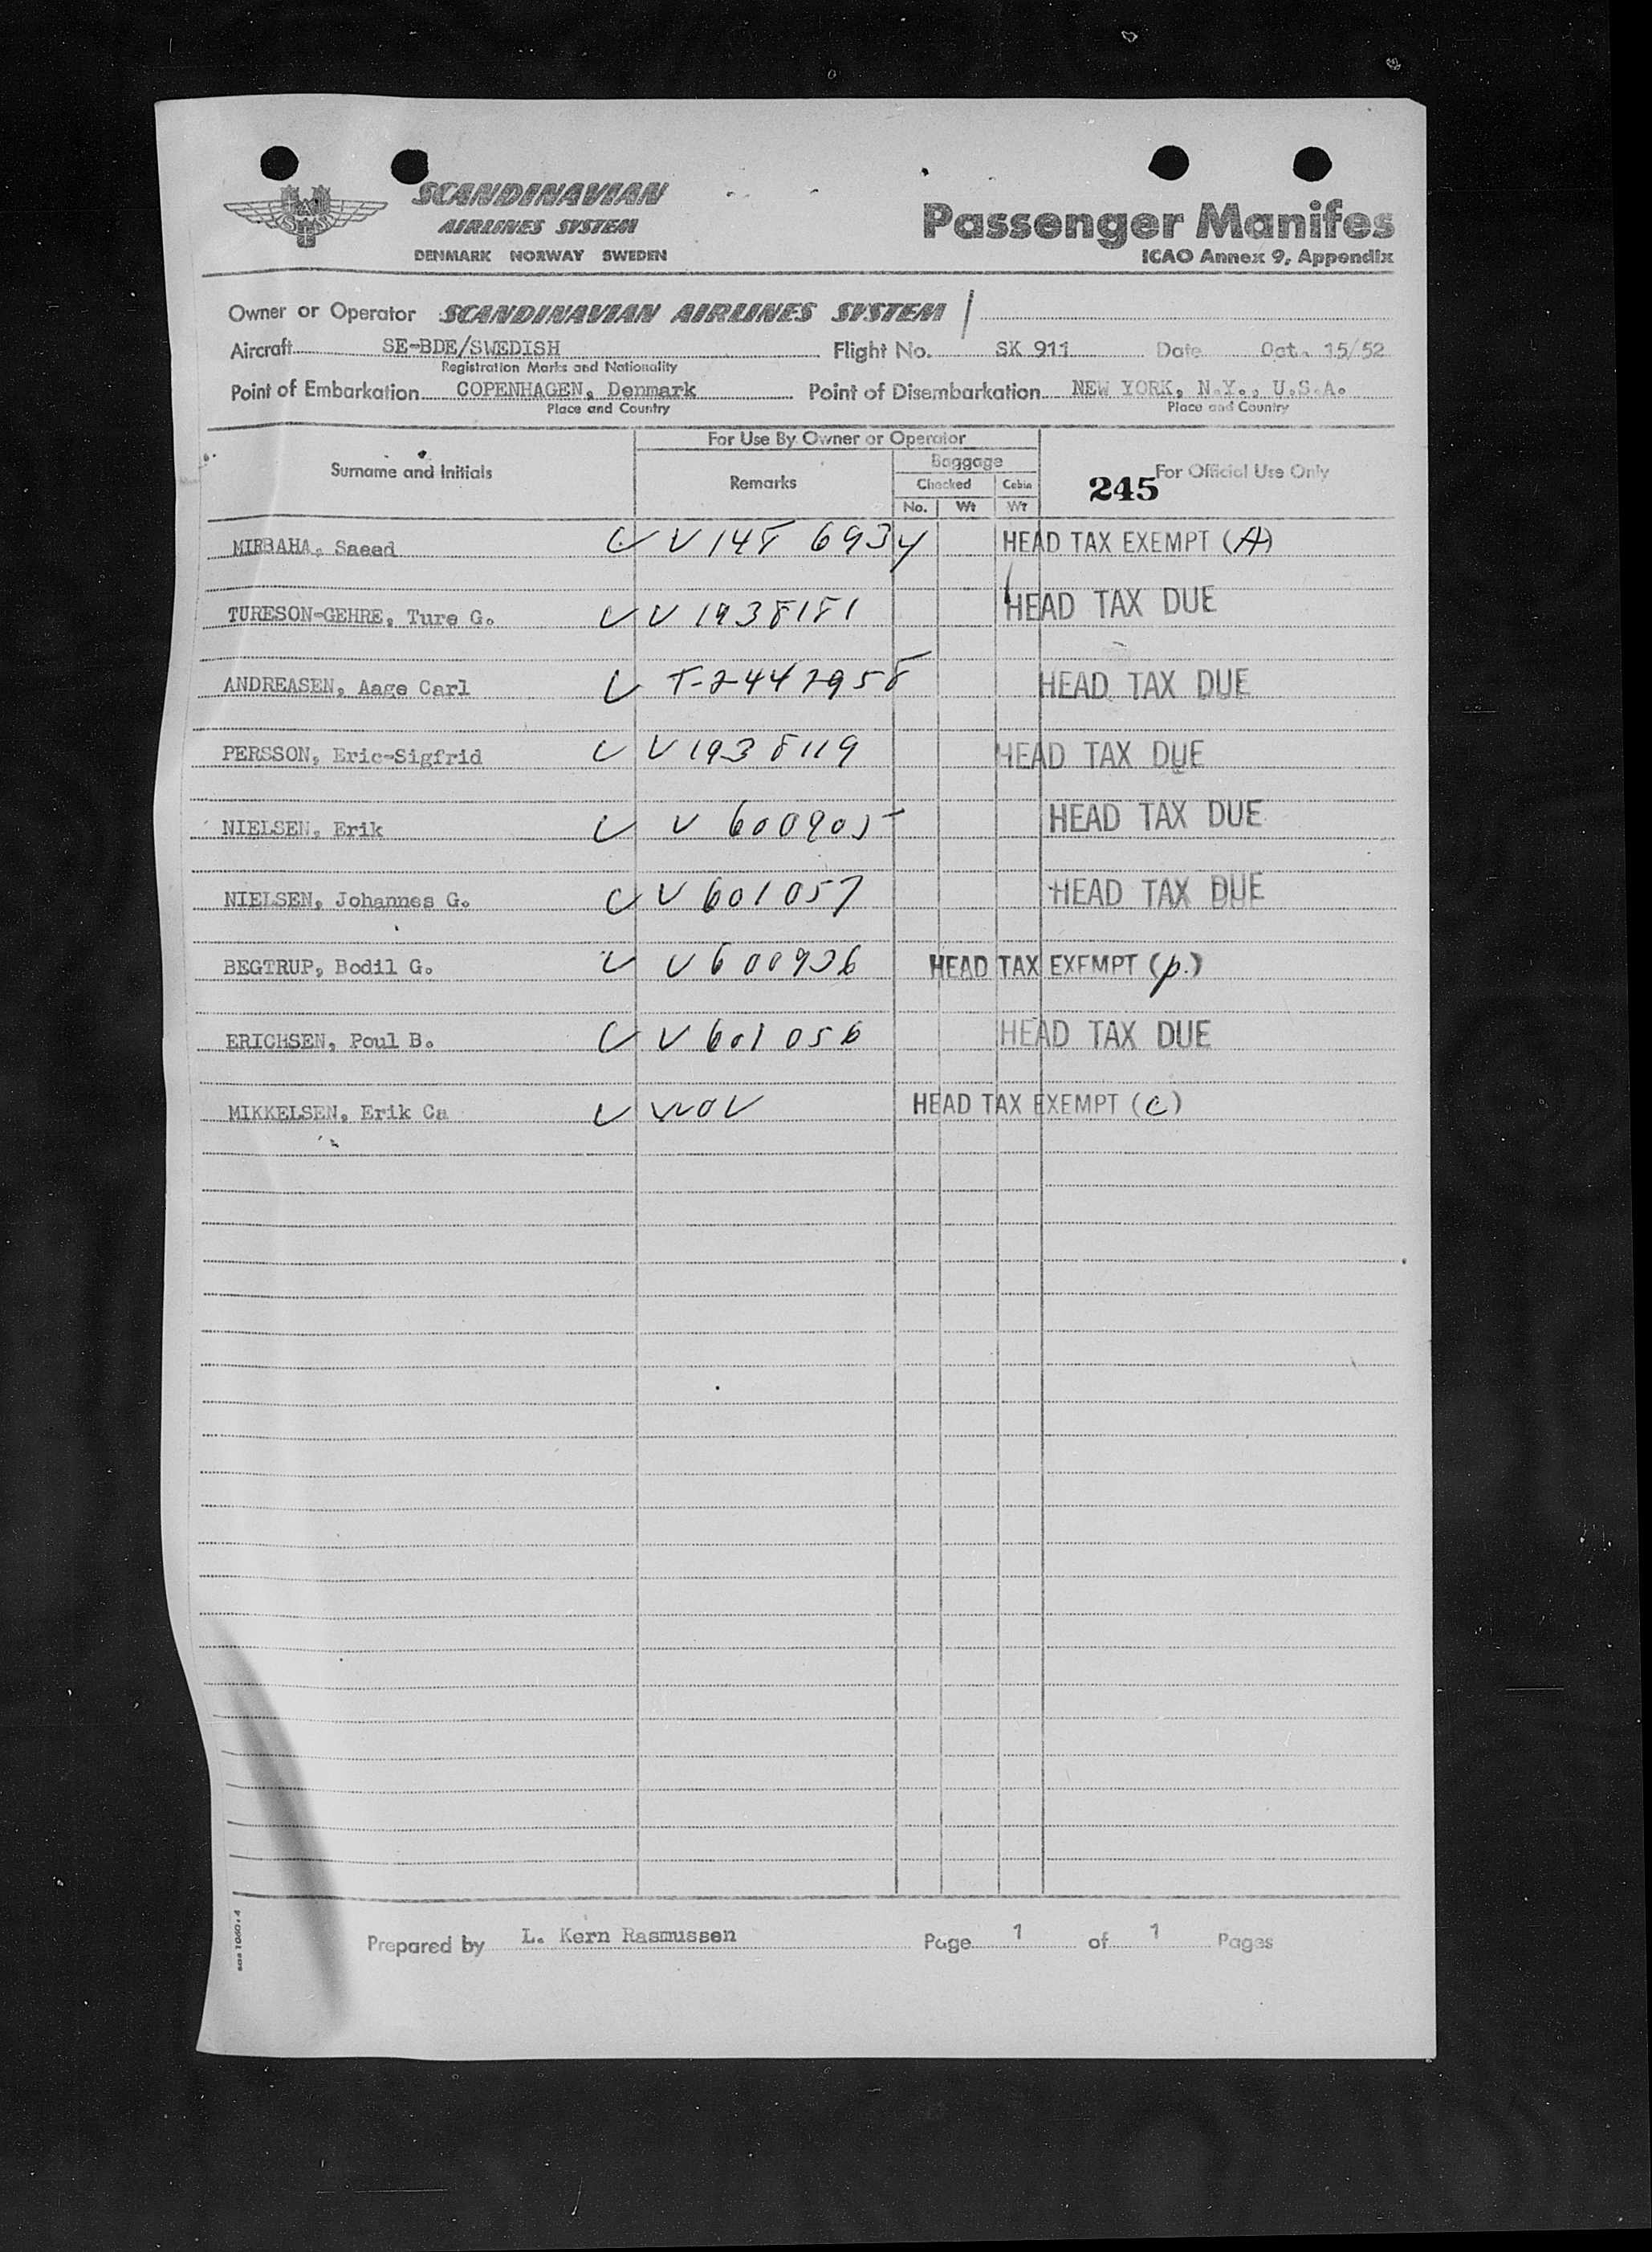 SCANDINAVIAN
AIRLINES SYSTEM
DENMARK NORWAY SWEDEN
Passenger Manifes
ICAO Annex 9, Appendix
Owner or Operator SCANDINAVIAN AIRLINES SYSTEM /
Aircraft SE-BDE/SWEDISH Flight No. SK 911 Date Oct. 15/52
Registration Marks and Nationality
Point of Embarkation COPENHAGEN, Denmark Point of Disembarkation NEW YORK, N.Y., U.S.A.
Place and Country Place and Country
For Use By Owner or Operator
Surname and Initials Remarks Baggage For Official Use Only
Checked Cabin 245
No. Wt Wt
MIRBAHA, Saeed V 148 6934 HEAD TAX EXEMPT (A)
TURESON-GEHRE, Ture G. V 1938181 HEAD TAX DUE
ANDREASEN, Aage Carl T-2442958 HEAD TAX DUE
PERSSON, Eric-Sigfrid V 1938119 HEAD TAX DUE
NIELSEN, Erik V 600905 HEAD TAX DUE
NIELSEN, Johannes G. V 601057 HEAD TAX DUE
BEGTRUP, Bodil G. V 600936 HEAD TAX EXEMPT (p.)
ERICHSEN, Poul B. V 601056 HEAD TAX DUE
MIKKELSEN, Erik Ca HEAD TAX EXEMPT (c)
Prepared by L. Kern Rasmussen Page 1 of 1 Pages
sas 1060.4